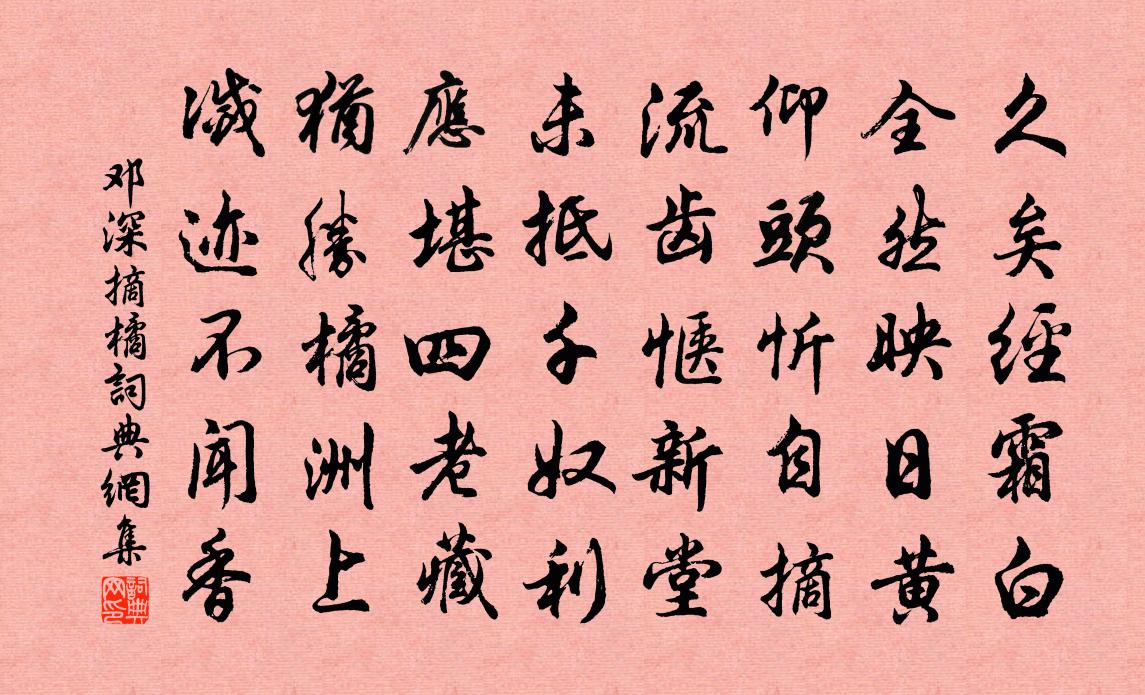 久矣經霜白
全然映日黄
仰頭忻自摘
流齿惬新堂
未抵千奴利
應堪四老藏
猶勝橘洲上
滅迹不闻香
邓深摘橘詞典網集
詞典网印